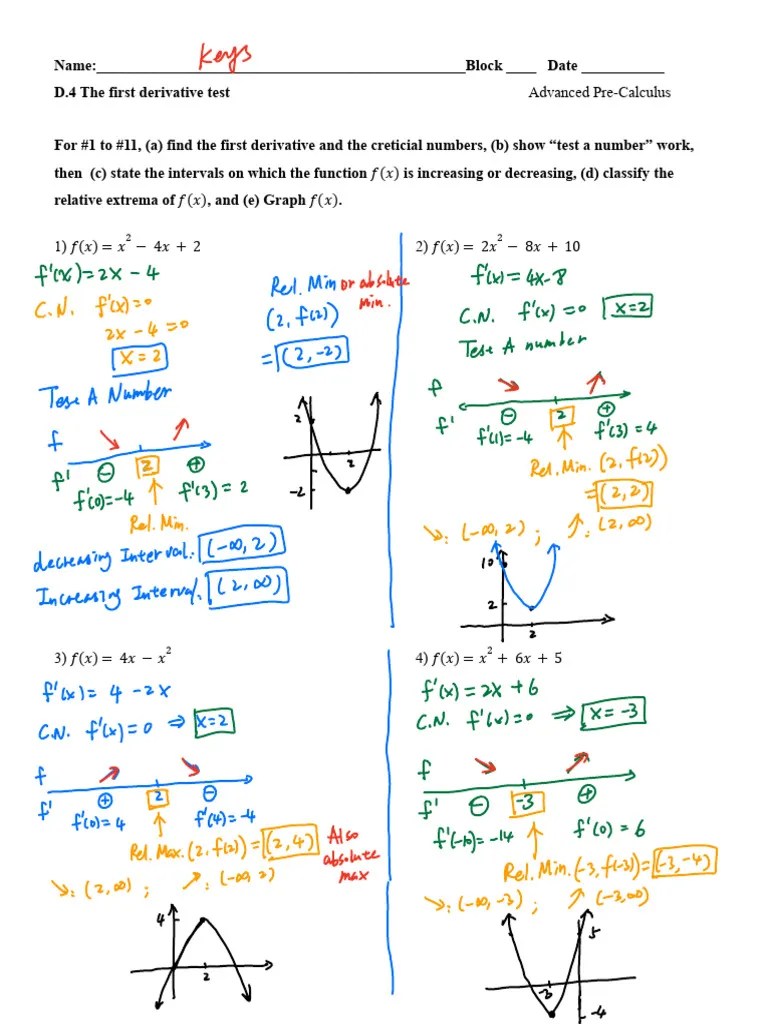 Keys
Name:________________ Block ____ Date ____________
D.4 The first derivative test Advanced Pre-Calculus
For #1 to #11, (a) find the first derivative and the creticial numbers, (b) show “test a number” work,
then (c) state the intervals on which the function f(x) is increasing or decreasing, (d) classify the
relative extrema of f(x), and (e) Graph f(x).
1) f(x) = x² − 4x + 2
f'(x) = 2x - 4
C.N. f'(x)=0
2x - 4 = 0
x = 2
Rel. Min or absolute min.
(2, f(2))
= (2, -2)
Test A Number
f
f'
⊖ 2 ⊕
f'(0)=-4 f'(3) = 2
Rel. Min.
2
2
-2
decreasing Interval: (-∞, 2)
Increasing Interval: (2, ∞)
2) f(x) = 2x² − 8x + 10
f'(x) = 4x-8
C.N. f'(x) = 0 x=2
Test A number
f
f'
⊖ 2 ⊕
f'(1)= -4 f'(3) = 4
Rel. Min. (2, f(2))
= (2, 2)
↘: (-∞, 2) ; ↗: (2, ∞)
10
2
2
3) f(x) = 4x − x²
f'(x) = 4 - 2x
C.N. f'(x) = 0 ⇒ x=2
f
f'
⊕ 2 ⊖
f'(0)= 4 f'(4)= -4
Rel. Max. (2, f(2)) = (2, 4) Also absolute max
↘: (2, ∞) ; ↗: (-∞, 2)
4
2
4) f(x) = x² + 6x + 5
f'(x) = 2x + 6
C.N. f'(x) = 0 ⇒ x = -3
f
f'
⊖ -3 ⊕
f'(-10)= -14 f'(0) = 6
Rel. Min. (-3, f(-3)) = (-3, -4)
↘: (-∞, -3) ; ↗ (-3, ∞)
5
-3
-4